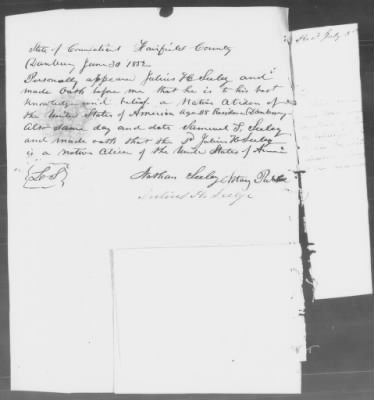 State of Connecticut Fairfield County
Danbury June 30 1852.
Personally appears Julius H. Seeley and
made oath before me that he is to his best
knowledge and belief a Native Citizen of
the United States of America age 28 Residence Danbury
also same day and date Samuel S. Seeley
and made oath that the Sd Julius H Seeley
is a native Citizen of the United States of
L S
Nathan Seeley Notary Public
Julius H. Seelye
Recd July